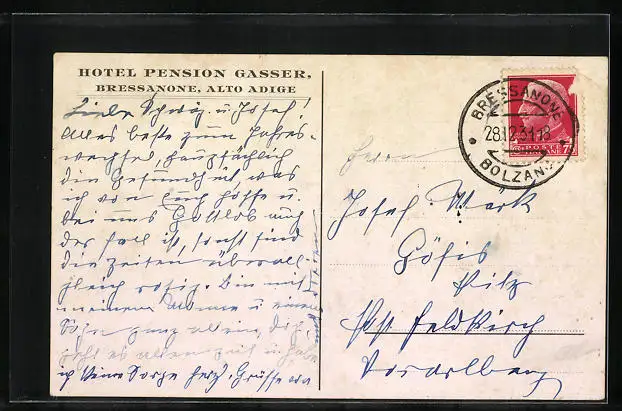 HOTEL PENSION GASSER,
BRESSANONE, ALTO ADIGE
Liebe Schwäg. u. Josef!
Alles beste zum Jahres-
wechsel, hauptsächlich
die Gesundheit was
ich von Euch hoffe u.
bei uns Gottlob auch
der Fall ist, sonst sind
die Zeiten überall
gleich rosig. Bin mit
meinem Manne u. einem
Sohn ganz allein, die
geht es allen gut u. habe
ich keine Sorge herzl. Grüsse
BRESSANONE
28.12.31-18
BOLZANO
POSTE
ITALIANE
Herrn
Josef
Göfis
Pilz
Post Feldkirch
Vorarlberg